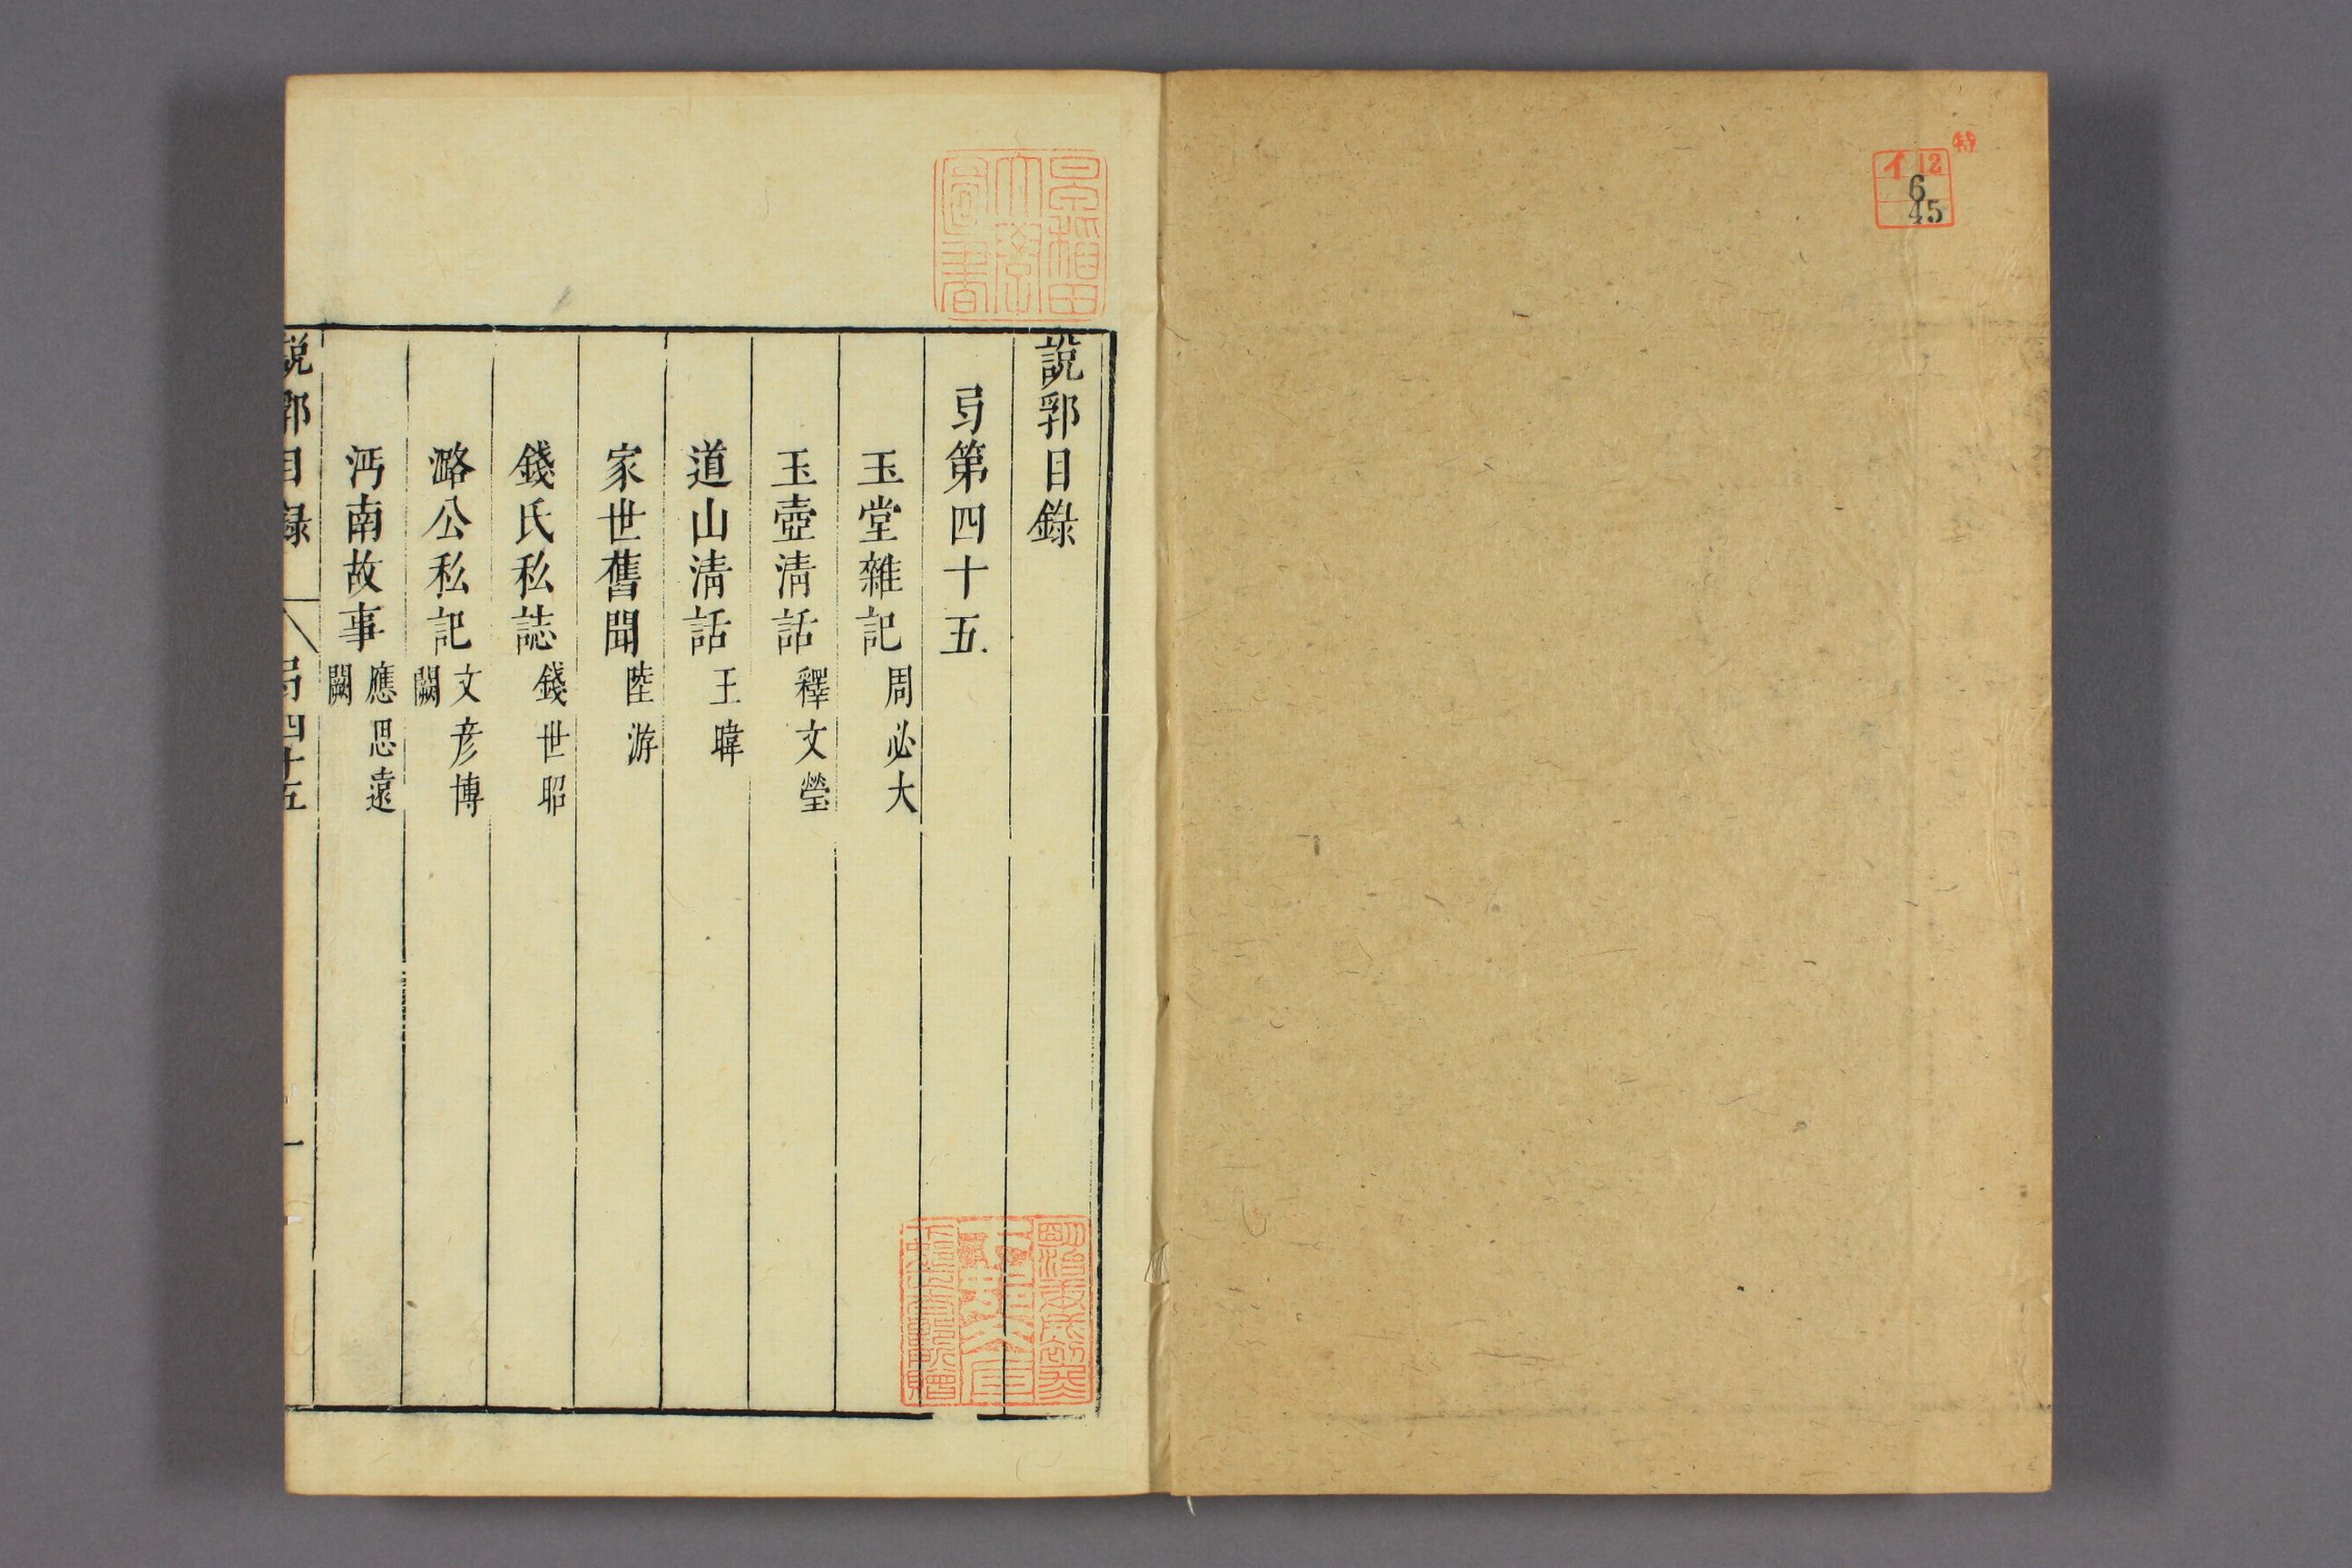 特
イ 12
6
45
早稲田
大學
圖書
說郛目錄
弓第四十五
玉堂雜記 周必大
玉壼清話 釋文瑩
道山清話 王暐
家世舊聞 陸游
錢氏私誌 錢世昭
潞公私記 文彦博 闕
沔南故事 應思遠 闕
說郛目録 弓四十五 一